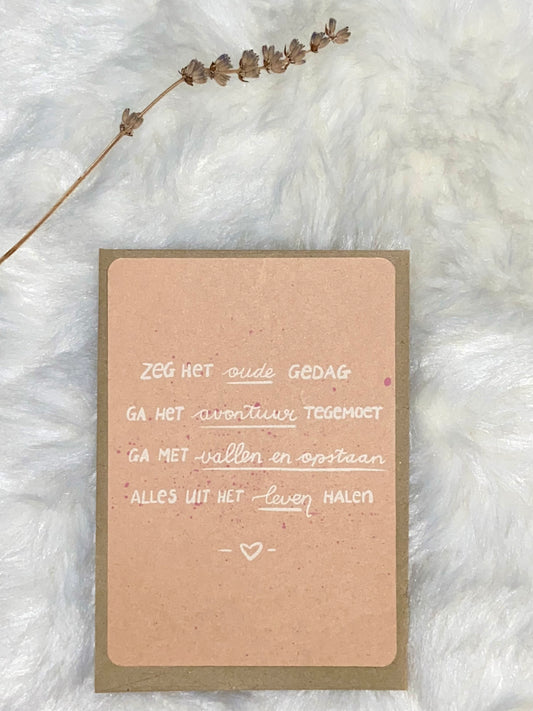 ZEG HET oude GEDAG
GA HET avontuur TEGEMOET
GA MET vallen en opstaan
ALLES UIT HET leven HALEN